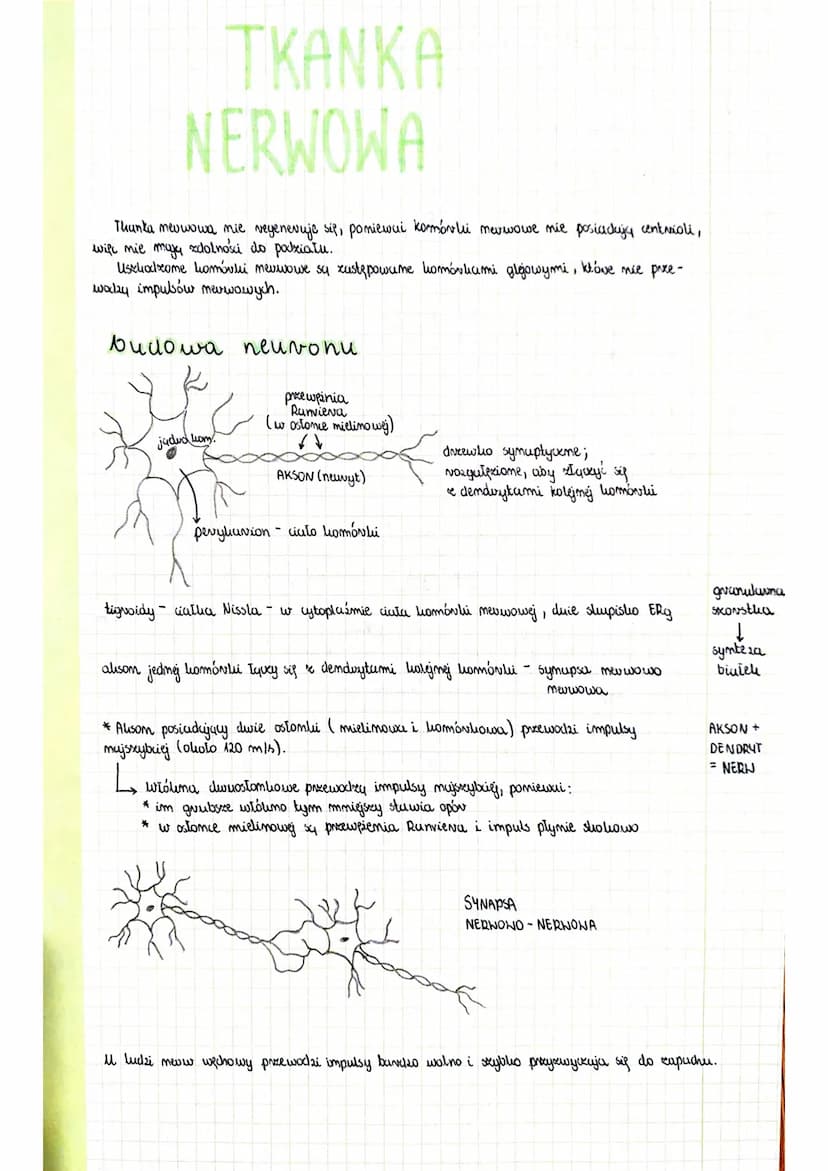 TKANKA
NERWOWA
Tkanka nerwowa nie regeneruje się, ponieważ komórki nerwowe nie posiadają centrioli,
więc nie mają zdolności do podziału.
Uszkodzone komórki nerwowe są zastępowane komórkami glejowymi, które nie prze-
wodzą impulsów nerwowych.
budowa neuronu
przewężenia
Ranviera
(w osłonie mielinowej)
jądro kom.
AKSON (neuryt)
drzewko synaptyczne;
rozgałęzione, aby złączyć się
z dendrytami kolejnej komórki
perykarion - ciało komórki
tigroidy - ciałka Nissla - w cytoplaźmie ciała komórki nerwowej, duże skupisko ERg
granularna
szorstka
↓
synteza
białek
akson jednej komórki łączy się z dendrytami kolejnej komórki - synapsa nerwowo
nerwowa
* Akson posiadający dwie osłonki (mielinowa i komórkowa) przewodzi impulsy
najszybciej (około 120 m/s).
AKSON +
DENDRYT
= NERW
włókna dwuosłonkowe przewodzą impulsy najszybciej, ponieważ:
* im grubsze włókno tym mniejszy stawia opór
* w osłonce mielinowej są przewężenia Ranviera i impuls płynie skokowo
SYNAPSA
NERWOWO - NERWOWA
U ludzi nerw węchowy przewodzi impulsy bardzo wolno i szybko przyzwyczaja się do zapachu.